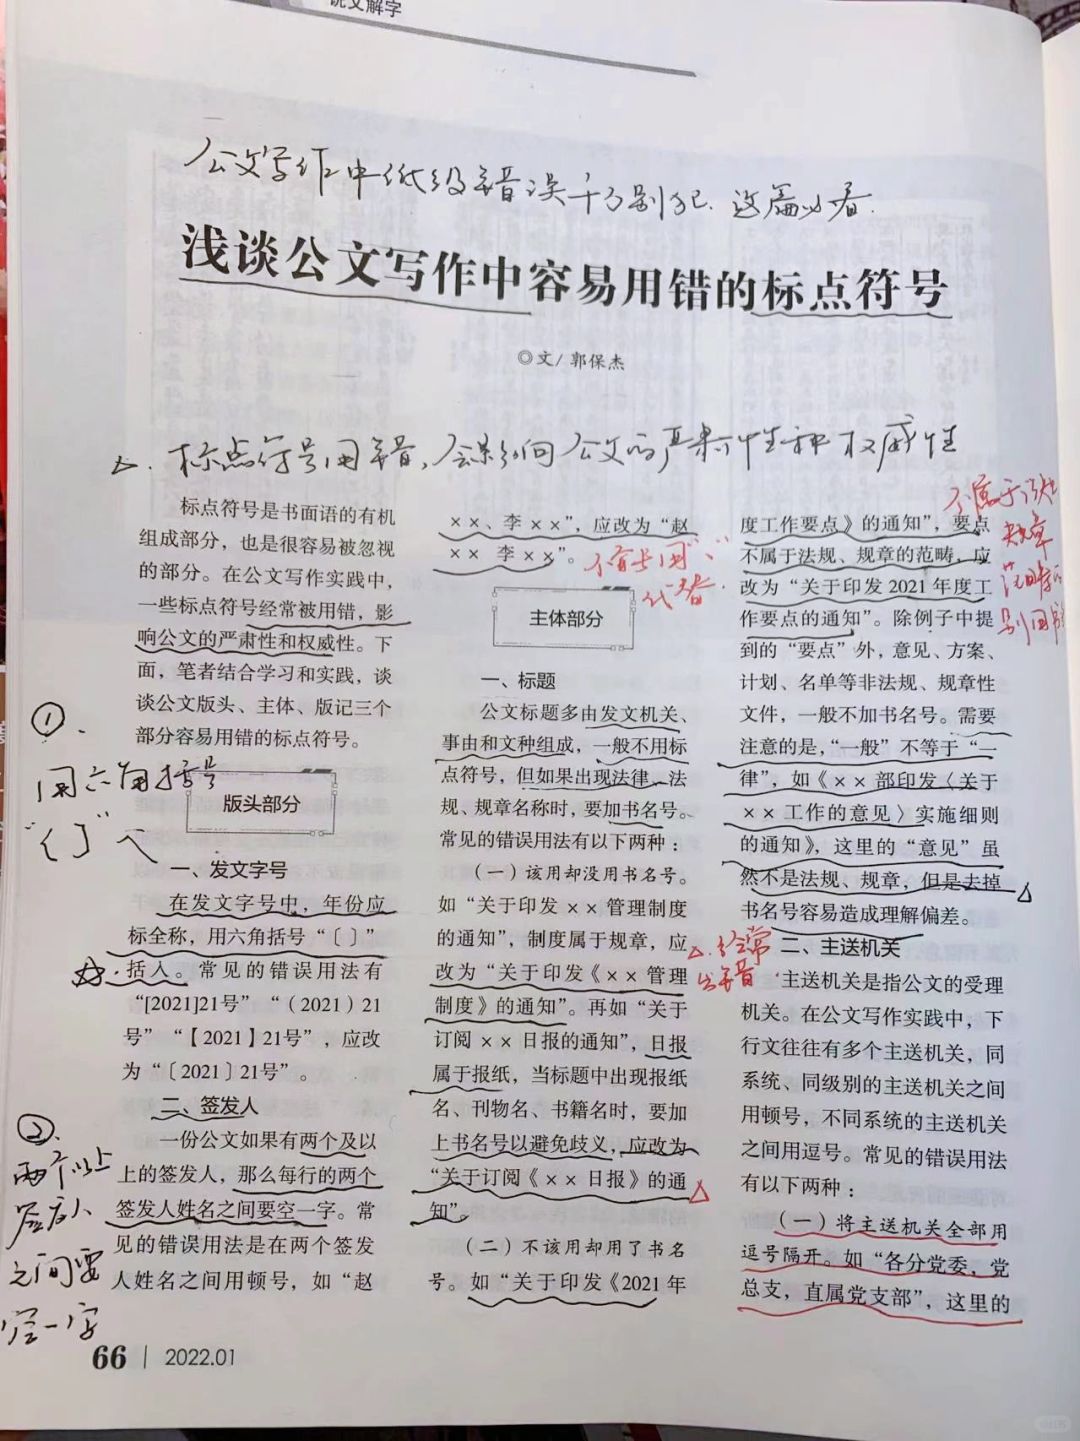 说文解字
公文写作中低级错误千万别犯.这篇必看.
浅谈公文写作中容易用错的标点符号
◎文/郭保杰
△.标点符号用错,会影响公文的严肃性和权威性
标点符号是书面语的有机
组成部分，也是很容易被忽视
的部分。在公文写作实践中，
一些标点符号经常被用错，影
响公文的严肃性和权威性。下
面，笔者结合学习和实践，谈
谈公文版头、主体、版记三个
部分容易用错的标点符号。
①.
用六角括号
“〔〕”
版头部分
一、发文字号
在发文字号中，年份应
标全称，用六角括号“〔〕”
括入。常见的错误用法有
“[2021]21号”“（2021）21
号”“【2021】21号”，应改
为“〔2021〕21号”。
二、签发人
一份公文如果有两个及以
上的签发人，那么每行的两个
签发人姓名之间要空一字。常
见的错误用法是在两个签发
人姓名之间用顿号，如“赵
②.
两个以上
签发人
之间要
空一字
××、李××”，应改为“赵
××　李××”。
主体部分
一、标题
公文标题多由发文机关、
事由和文种组成，一般不用标
点符号，但如果出现法律、法
规、规章名称时，要加书名号。
常见的错误用法有以下两种：
（一）该用却没用书名号。
如“关于印发××管理制度
的通知”，制度属于规章，应
改为“关于印发《××管理
制度》的通知”。再如“关于
订阅××日报的通知”，日报
属于报纸，当标题中出现报纸
名、刊物名、书籍名时，要加
上书名号以避免歧义，应改为
“关于订阅《××日报》的通
知”。
（二）不该用却用了书名
号。如“关于印发《2021年
度工作要点》的通知”，要点
不属于法规、规章的范畴，应
改为“关于印发2021年度工
作要点的通知”。除例子中提
到的“要点”外，意见、方案、
计划、名单等非法规、规章性
文件，一般不加书名号。需要
注意的是，“一般”不等于“一
律”，如《××部印发〈关于
××工作的意见〉实施细则
的通知》，这里的“意见”虽
然不是法规、规章，但是去掉
书名号容易造成理解偏差。
△.经常
出错
二、主送机关
主送机关是指公文的受理
机关。在公文写作实践中，下
行文往往有多个主送机关，同
系统、同级别的主送机关之间
用顿号，不同系统的主送机关
之间用逗号。常见的错误用法
有以下两种：
（一）将主送机关全部用
逗号隔开。如“各分党委，党
总支，直属党支部”，这里的
不属于法规
规章
范畴的
别用书
66 | 2022.01